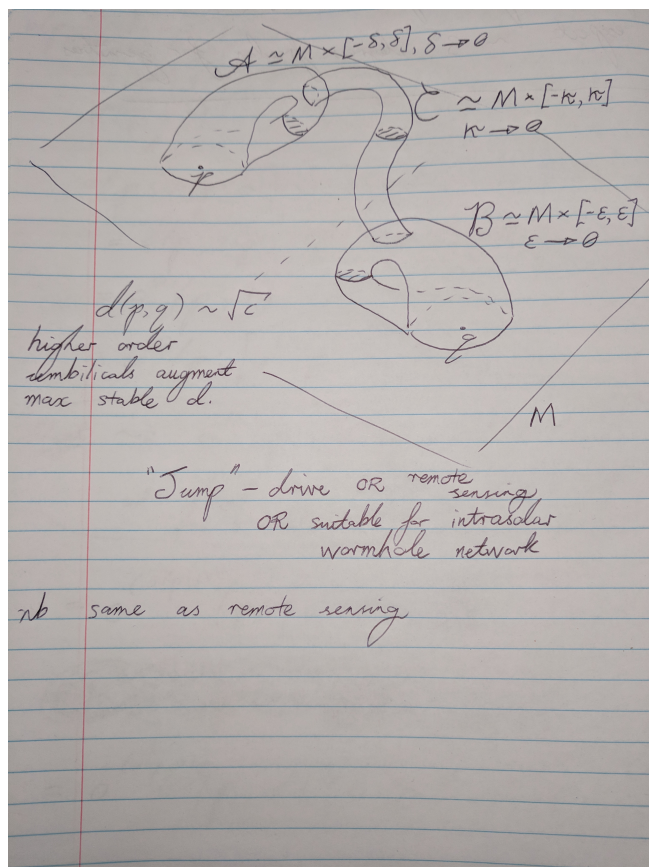 A ≃ M × [-δ, δ], δ → 0
C ≃ M × [-κ, κ]
κ → 0
p
B ≃ M × [-ε, ε]
ε → 0
d(p,q) ~ √c
higher order
umbilicals augment
max stable d.
q
M
"Jump" - drive OR remote
sensing
OR suitable for intrasolar
wormhole network
nb same as remote sensing